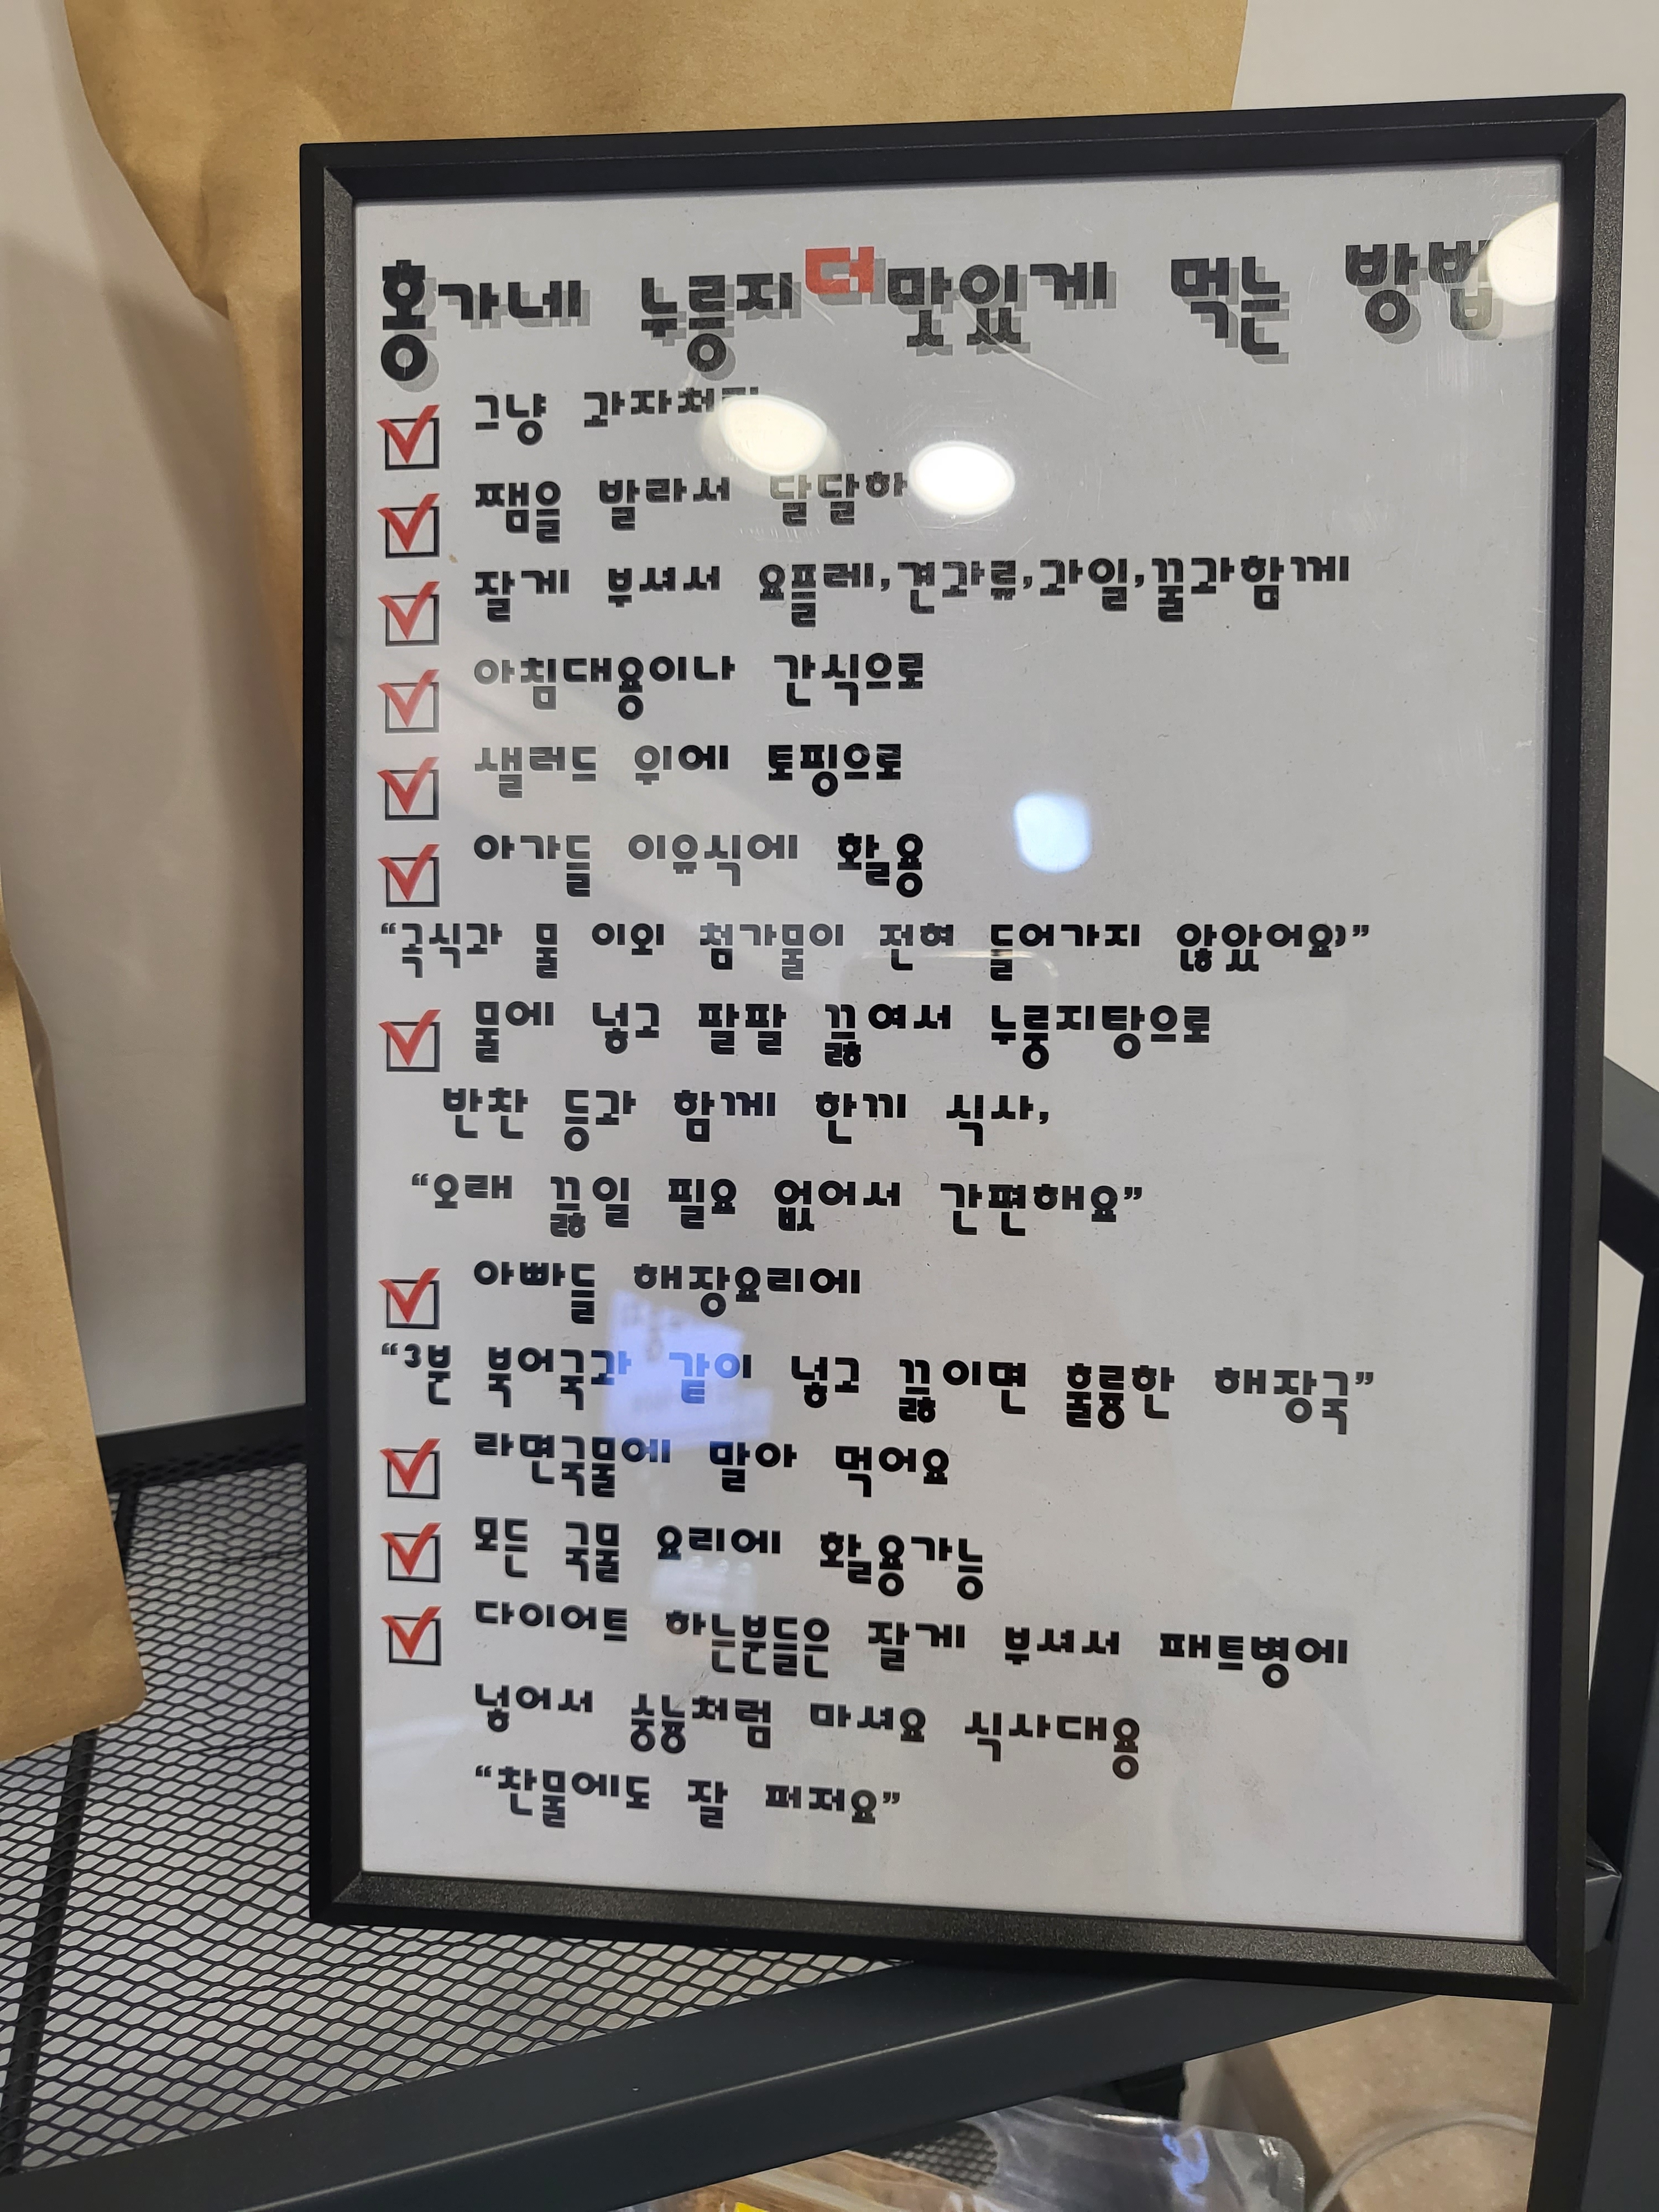 홍가네 누릉지 더 맛있게 먹는 방법
그냥 과자처럼
쨈을 발라서 달달하
잘게 부셔서 요플레,견과류,과일,꿀과함께
아침대용이나 간식으로
샐러드 위에 토핑으로
아가들 이유식에 활용
“곡식과 물 이외 첨가물이 전혀 들어가지 않았어요)”
물에 넣고 팔팔 끓여서 누룽지탕으로
반찬 등과 함께 한끼 식사,
“오래 끓일 필요 없어서 간편해요”
아빠들 해장요리에
“3분 북어국과 같이 넣고 끓이면 훌륭한 해장국”
라면국물에 말아 먹어요
모든 국물 요리에 활용가능
다이어트 하는분들은 잘게 부셔서 패트병에
넣어서 숭늉처럼 마셔요 식사대용
“찬물에도 잘 퍼져요”